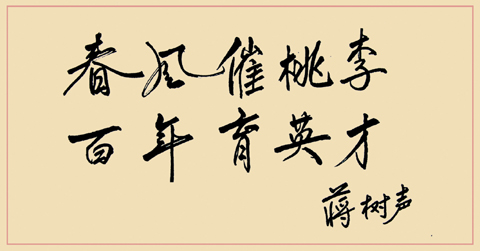 春风催桃李
百年育英才
蒋树声